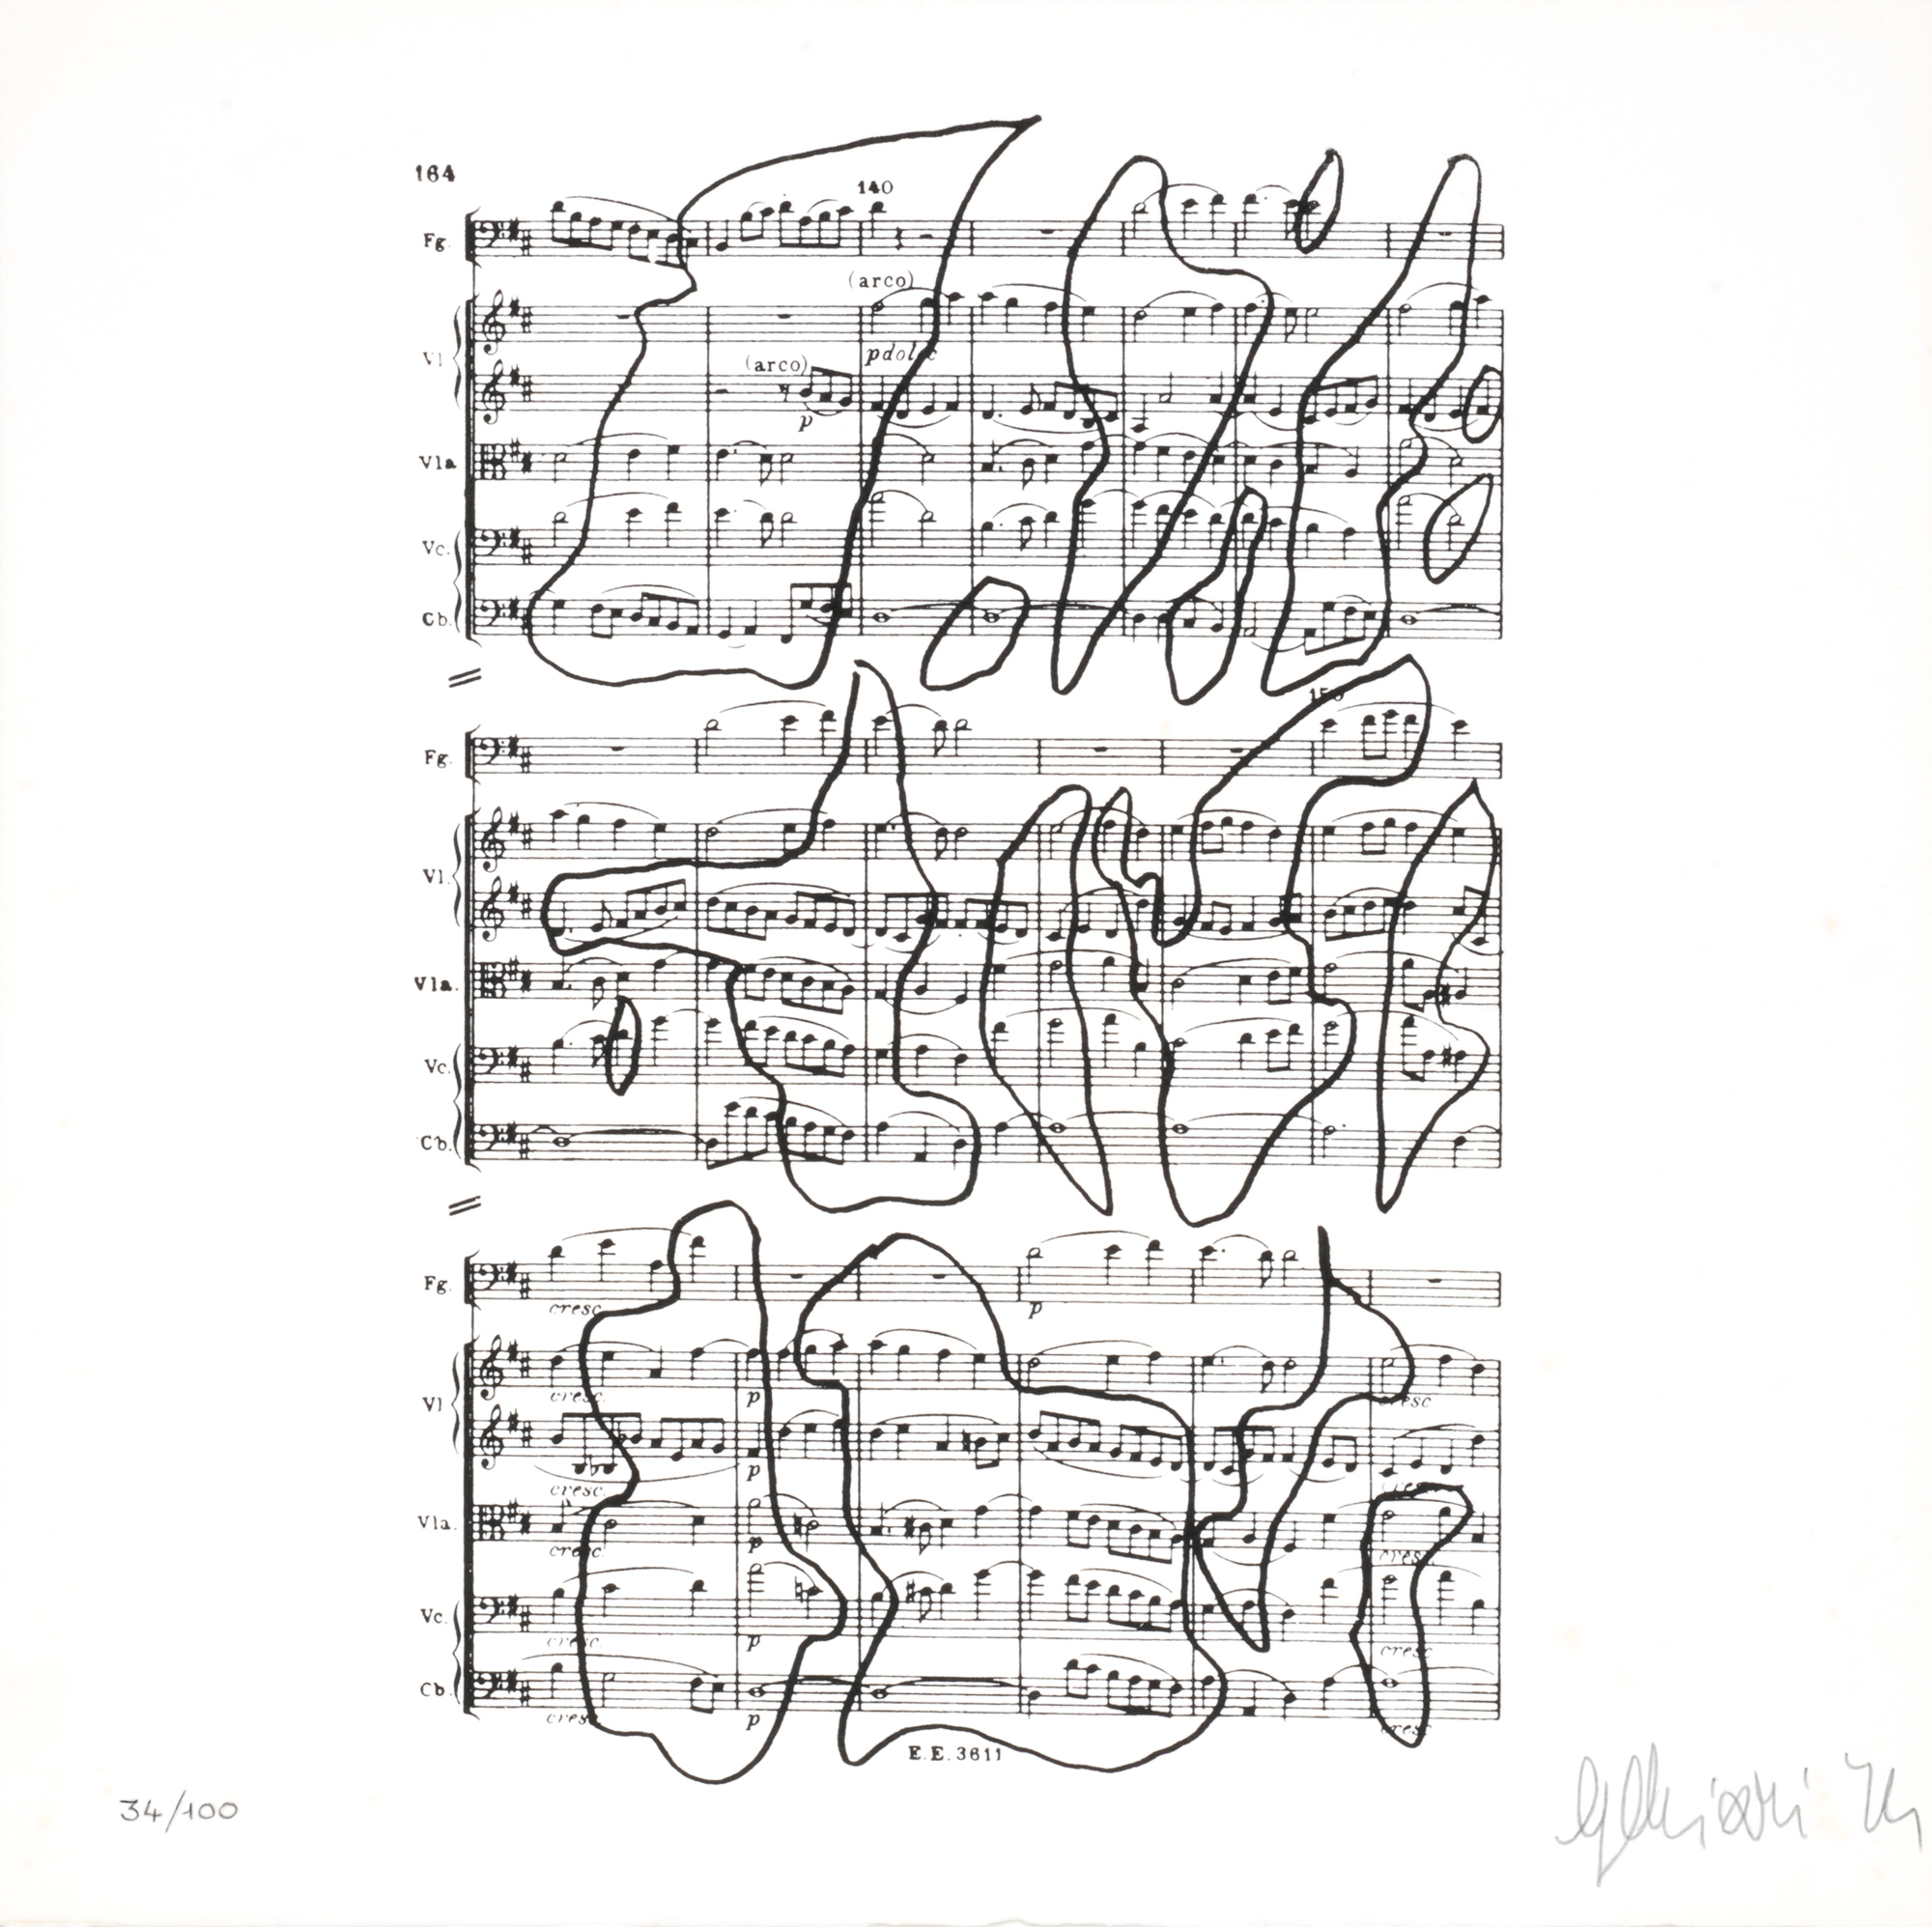 164
140
Fg.
(arco)
Vl
pdolce
(arco)
p
Vla
Vc.
Cb.
150
Fg.
Vl.
Vla.
Vc.
Cb.
Fg.
cresc.
p
Vl
cresc.
p
cresc
p
cresc.
cresc
Vla.
cresc.
p
cresc.
Vc.
cresc.
p
cresc
Cb.
cresc
p
cresc
E.E. 3611
34/100